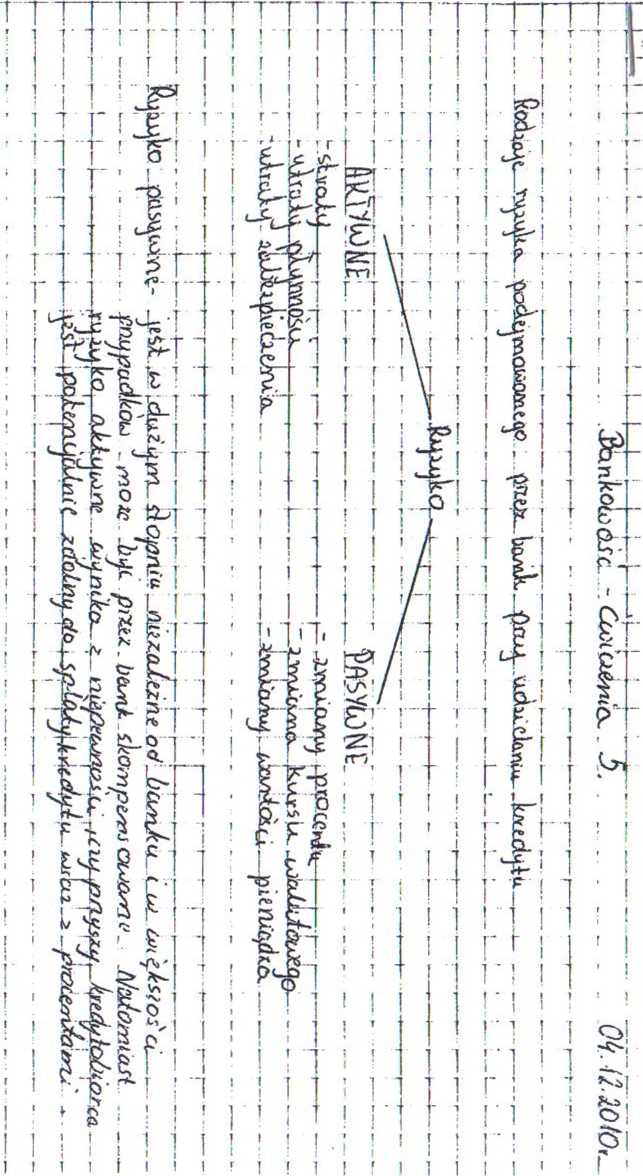 Bankowość - ćwiczenia 5. 04.12.2010r.
Rodzaje ryzyka podejmowanego przez bank przy udzielaniu kredytu
Ryzyko
AKTYWNE
PASYWNE
- straty
- utraty płynności
- utraty zabezpieczenia
- zmiany procentu
- zmiana kursu walutowego
- zmiany wartości pieniądza
Ryzyko pasywne - jest w dużym stopniu niezależne od banku i w większości
przypadków może być przez bank skompensowane. Natomiast
ryzyko aktywne wynika z niepewności, czy przyszły kredytobiorca
jest potencjalnie zdolny do spłaty kredytu wraz z procentami.